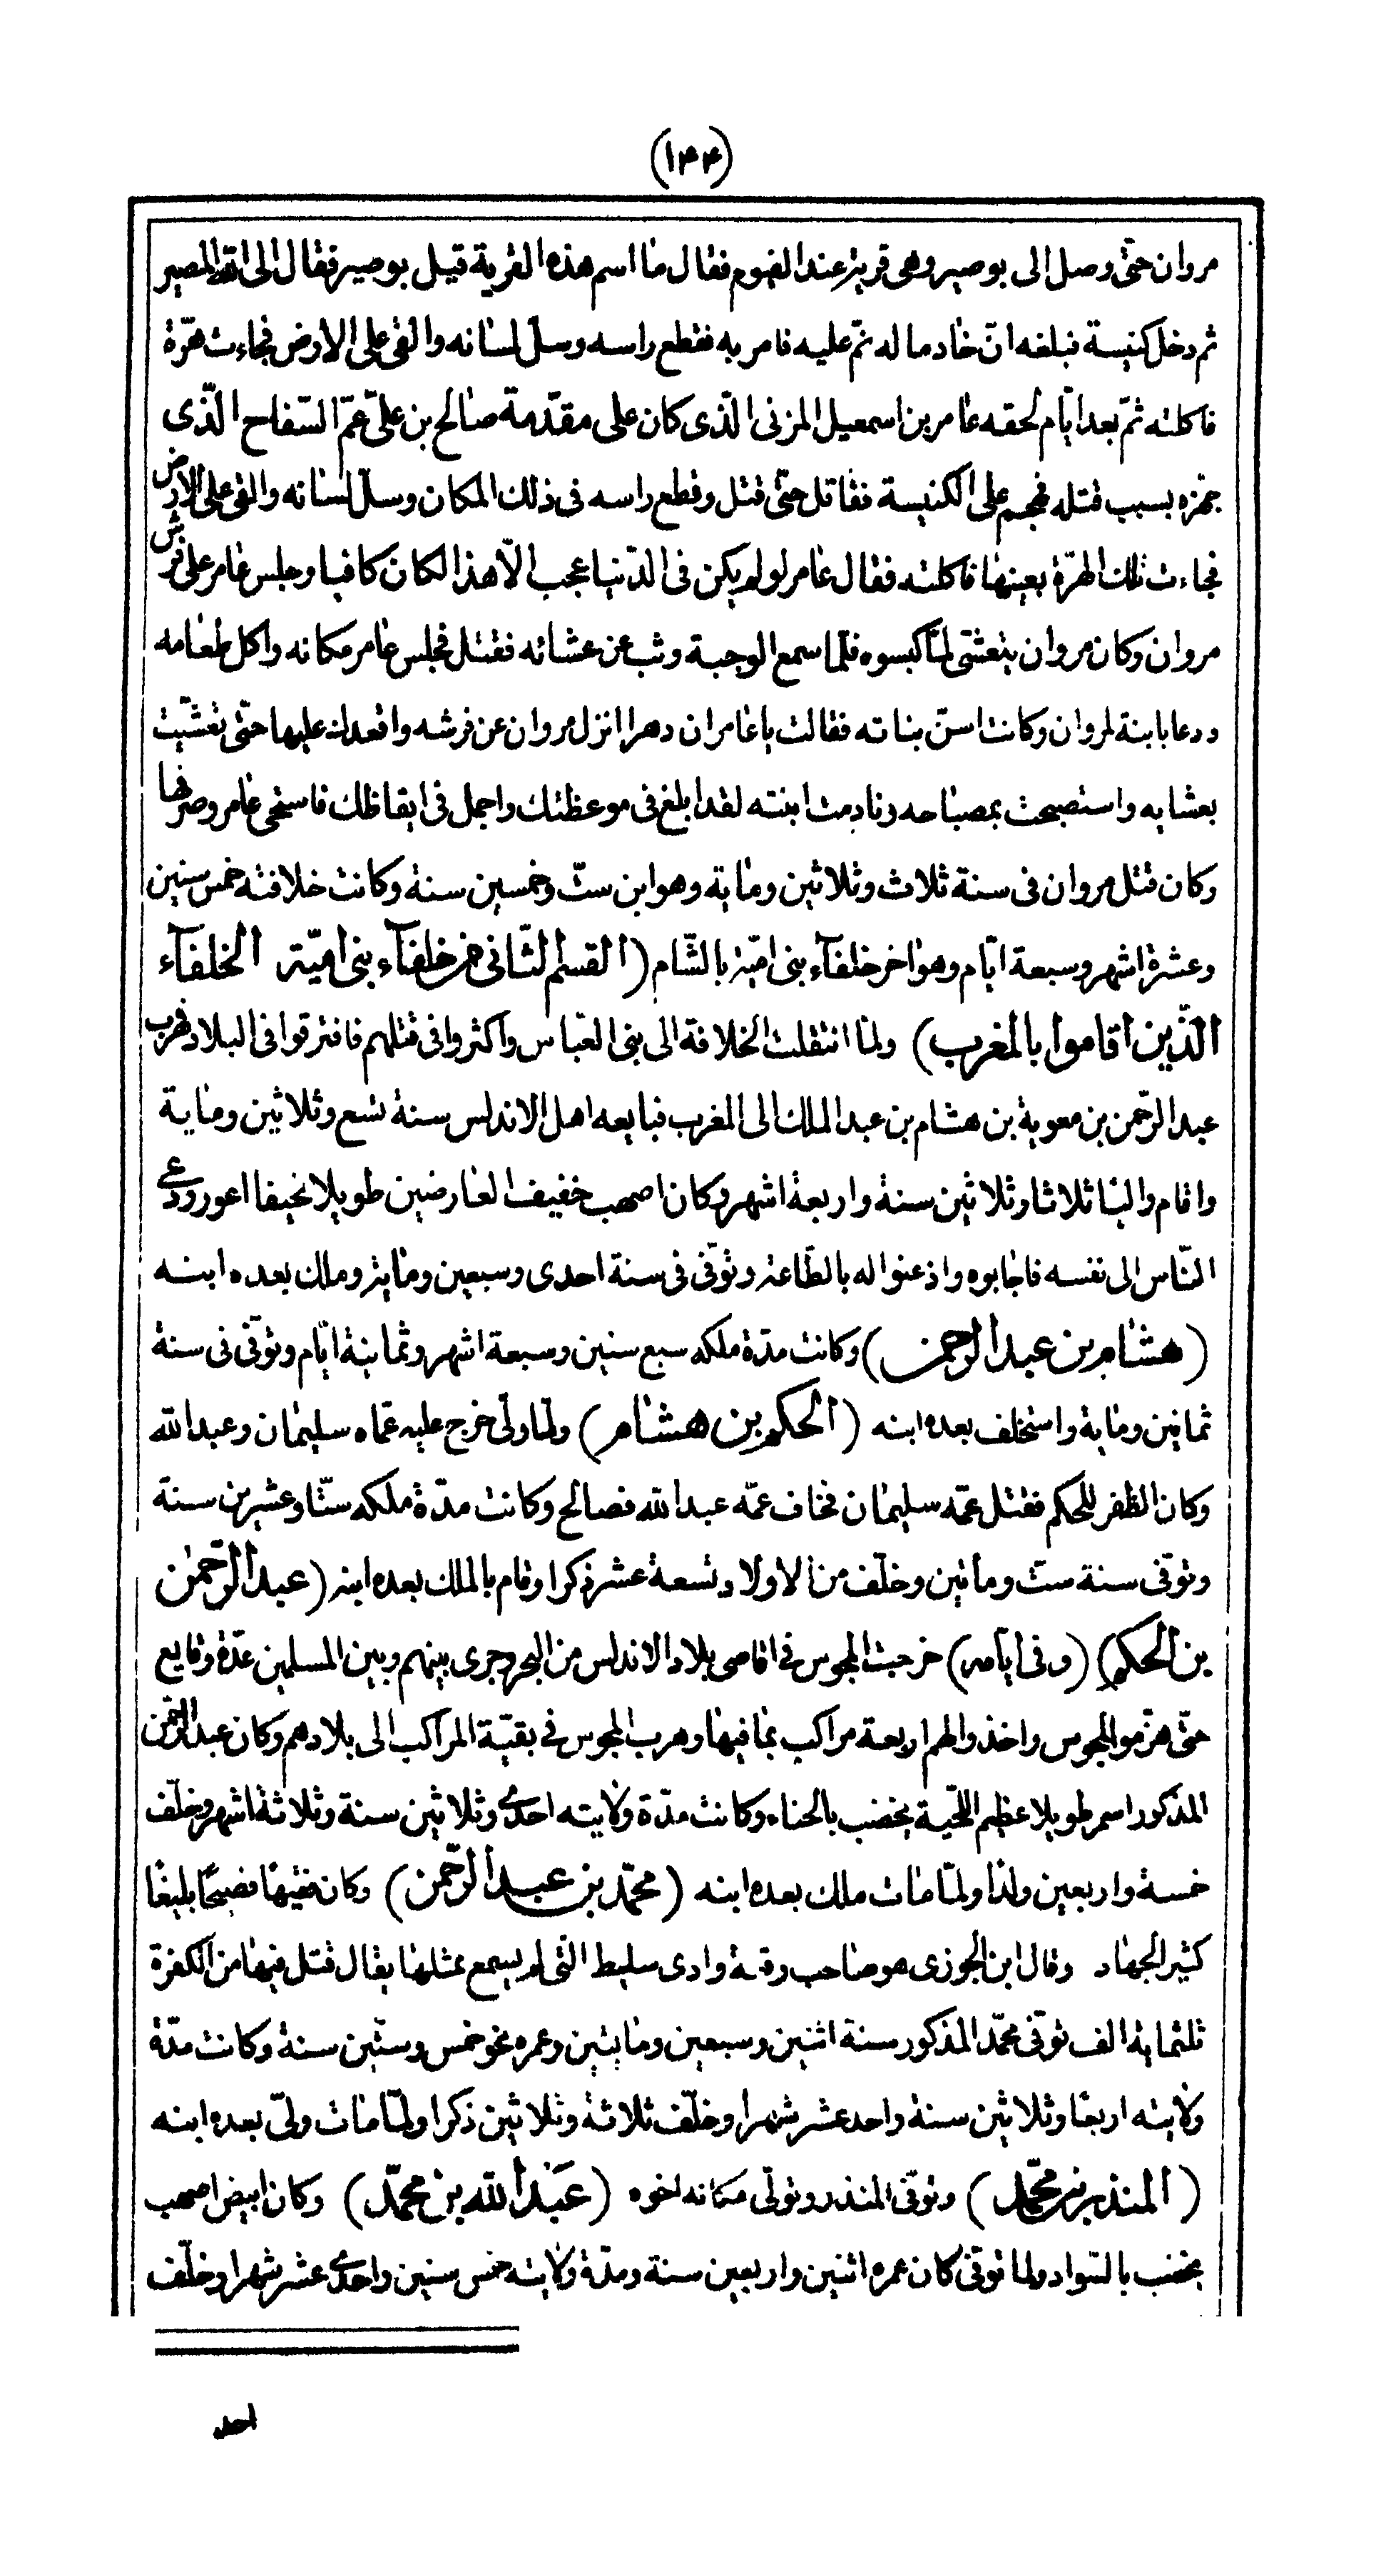 (١٤٤)
مروان حتّى وصل الى بوصير وهى قرية عند الفيوم فقال ما اسم هذه القرية قيل بوصير فقال الى الله المصير
ثم دخل كنيسة فبلغه انّ خادما له نمّ عليه فامر به فقطع راسه وسلّ لسانه والقى على الارض فجاءت هرّة
فاكلته ثمّ بعد ايّام لحقه عامر بن اسمعيل المزنى الّذى كان على مقدّمة صالح بن علىّ عمّ السّفاح الّذى
جهزه بسبب قتله فهجم على الكنيسة فقاتل حتّى قتل وقطع راسه فى ذلك المكان وسلّ لسانه والقى على الارض
فجاءت تلك الهرّة بعينها فاكلته فقال عامر لو لم يكن فى الدّنيا عجب الّا هذا لكان كافيا وجلس عامر على فرش
مروان وكان مروان يتعشّى لمّا كبسوه فلمّا سمع الوجبة وثب عن عشائه فقتل فجلس عامر مكانه واكل طعامه
ودعا بابنة لمروان وكانت اسنّ بناته فقالت يا عامر ان دهرا انزل مروان عن فرشه واقعدك عليها حتّى تعشّيت
بعشايه واستصبحت بمصباحه ونادمت ابنته لقد ابلغ فى موعظتك واجمل فى ايقاظك فاستحى عامر وصرفها
وكان قتل مروان فى سنة ثلاث وثلاثين وماية وهو ابن ستّ وخمسين سنة وكانت خلافته خمس سنين
وعشرة اشهر وسبعة ايّام وهو اخر خلفآء بنى اميّة بالشّام (القسم الثّانى من خلفآء بنى اميّة الخلفآء
الّذين اقاموا بالمغرب) ولمّا انتقلت الخلافة الى بنى العبّاس واكثروا فى قتلهم فافترقوا فى البلاد فهرب
عبد الرّحمن بن معوية بن هشام بن عبد الملك الى المغرب فبايعه اهل الاندلس سنة تسع وثلاثين وماية
واقام واليا ثلاثا وثلاثين سنة واربعة اشهر وكان اصهب خفيف العارضين طويلا نحيفا اعور ودعى
النّاس الى نفسه فاجابوه واذعنوا له بالطّاعة وتوفّى فى سنة احدى وسبعين وماية وملك بعده ابنه
(هشام بن عبد الرحمن) وكانت مدّة ملكه سبع سنين وسبعة اشهر وثمانية ايّام وتوفّى فى سنة
ثمانين وماية واستخلف بعده ابنه (الحكم بن هشام) ولمّا ولّى خرج عليه عمّاه سليمان وعبد الله
وكان الظفر للحكم فقتل عمّه سليمان فخاف عمّه عبد الله فصالح وكانت مدّة ملكه ستّا وعشرين سنة
وتوفّى سنة ستّ ومأتين وخلّف من الاولاد تسعة عشر ذكرا وقام بالملك بعده ابنه (عبد الرّحمن
بن الحكم) (وفى ايّامه) خرجت المجوس فى اقاصى بلاد الاندلس من البحر وجرى بينهم وبين المسلمين عدّة وقايع
حتّى هزموا المجوس واخذوا لهم اربعة مراكب بما فيها وهرب المجوس فى بقيّة المراكب الى بلادهم وكان عبد الرّحمن
المذكور اسمر طويلا عظيم اللّحية يخضب بالحناء وكانت مدّة ولايته احدى وثلاثين سنة وثلاثة اشهر وخلّف
خمسة واربعين ولدا ولمّا مات ملك بعده ابنه (محمّد بن عبد الرّحمن) وكان فقيها فصيحا بليغا
كثير الجهاد وقال ابن الجوزى هو صاحب وقعة وادى سليط الّتى لم يسمع بمثلها يقال قتل فيها من الكفرة
ثلثماية الف توفّى محمّد المذكور سنة اثنين وسبعين ومايتين وعمره نحو خمس وستّين سنة وكانت مدّة
ولايته اربعا وثلاثين سنة واحد عشر شهرا وخلّف ثلاثة وثلاثين ذكرا ولمّا مات ولىّ بعده ابنه
(المنذر بن محمّد) وتوفّى المنذر وتولّى مكانه اخوه (عبد الله بن محمّد) وكان ابيض اصهب
يخضب بالسّواد ولما توفّى كان عمره اثنين واربعين سنة ومدّة ولايته خمس سنين واحدى عشر شهرا وخلّف
احد